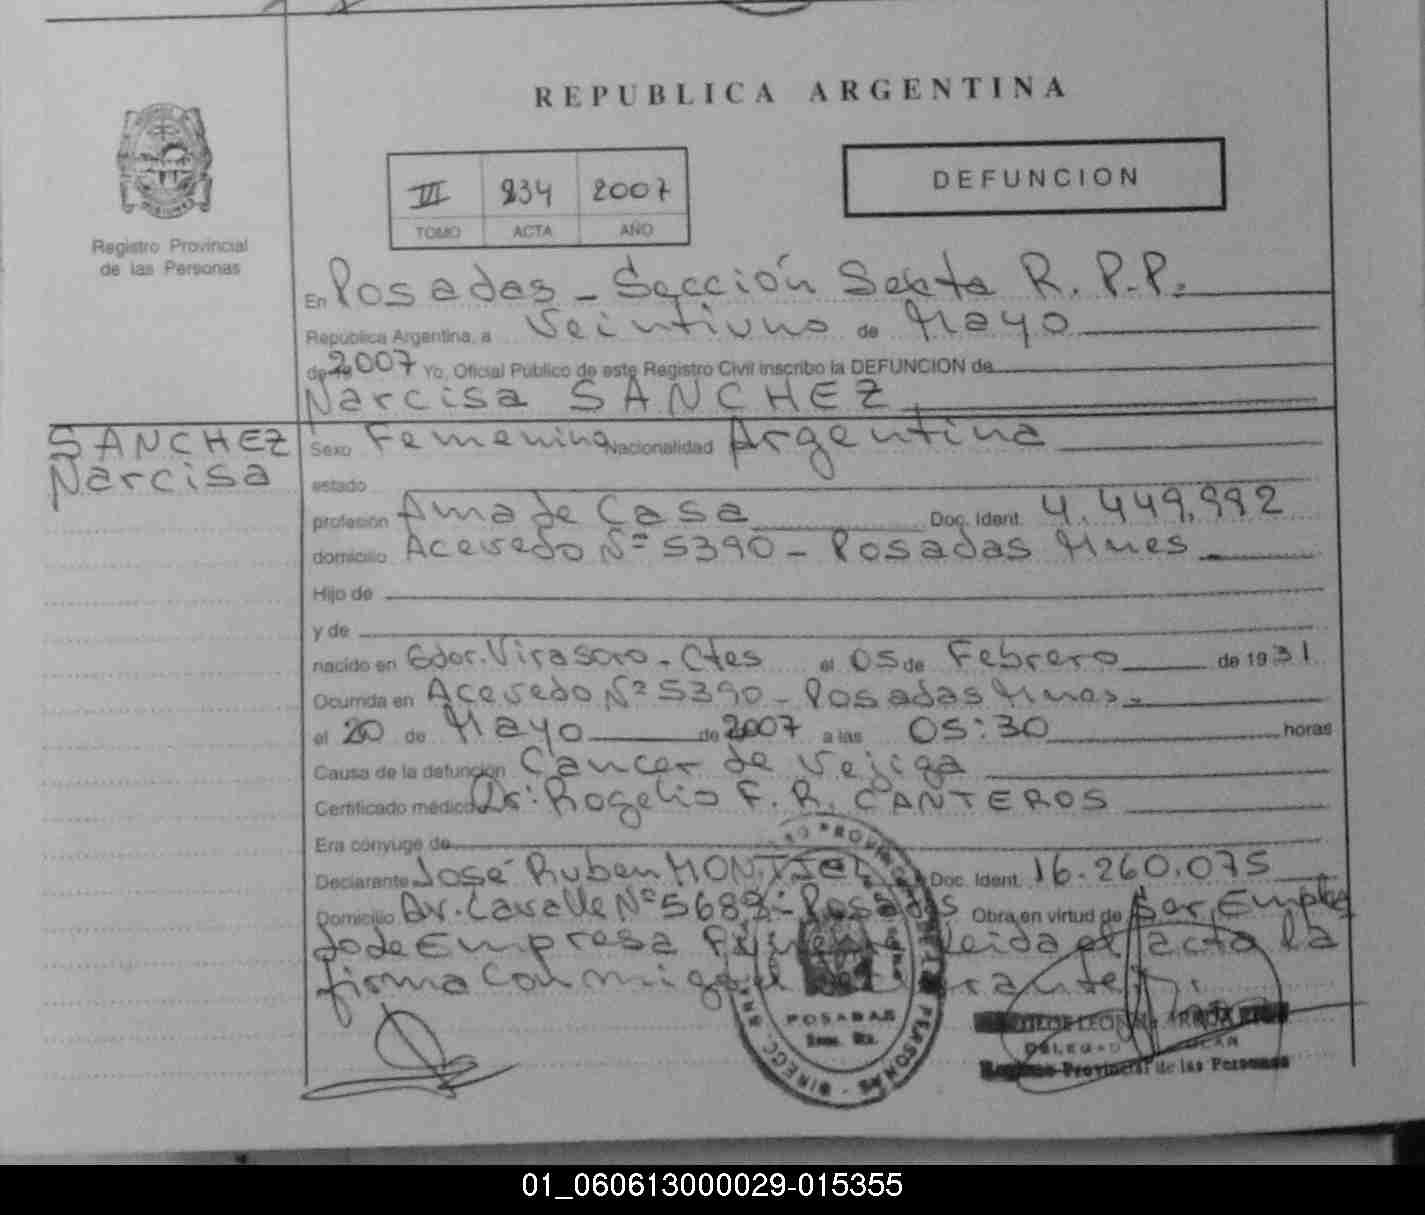 REPUBLICA ARGENTINA
III 834 2007
TOMO ACTA AÑO
DEFUNCION
Registro Provincial
de las Personas
En Posadas - Sección Sexta R. P.P.
República Argentina, a Veintiuno de Mayo
de 2007 Yo, Oficial Público de este Registro Civil inscribo la DEFUNCION de
Narcisa SANCHEZ
SANCHEZ
Narcisa
Sexo Femenino Nacionalidad Argentina
estado
profesión Ama de Casa Doc. Ident. 4.449.992
domicilio Acevedo Nº 5390 - Posadas Mnes
Hijo de
y de
nacido en Gdor. Virasoro - Ctes el 05 de Febrero de 1931
Ocurrida en Acevedo Nº 5390 - Posadas Mnes.
el 20 de Mayo de 2007 a las 05:30 horas
Causa de la defunción Cancer de Vejiga
Certificado médico Dr: Rogelio F. R. CANTEROS
Era cónyuge de
Declarante José Ruben MONTIEL Doc. Ident. 16.260.075
Domicilio Av. Lavalle Nº 5689 - Posadas Obra en virtud de Ser Emplea
do de Empresa leida el acta la
firma conmigo el
POSADAS
Registro Provincial de las Personas
01_060613000029-015355